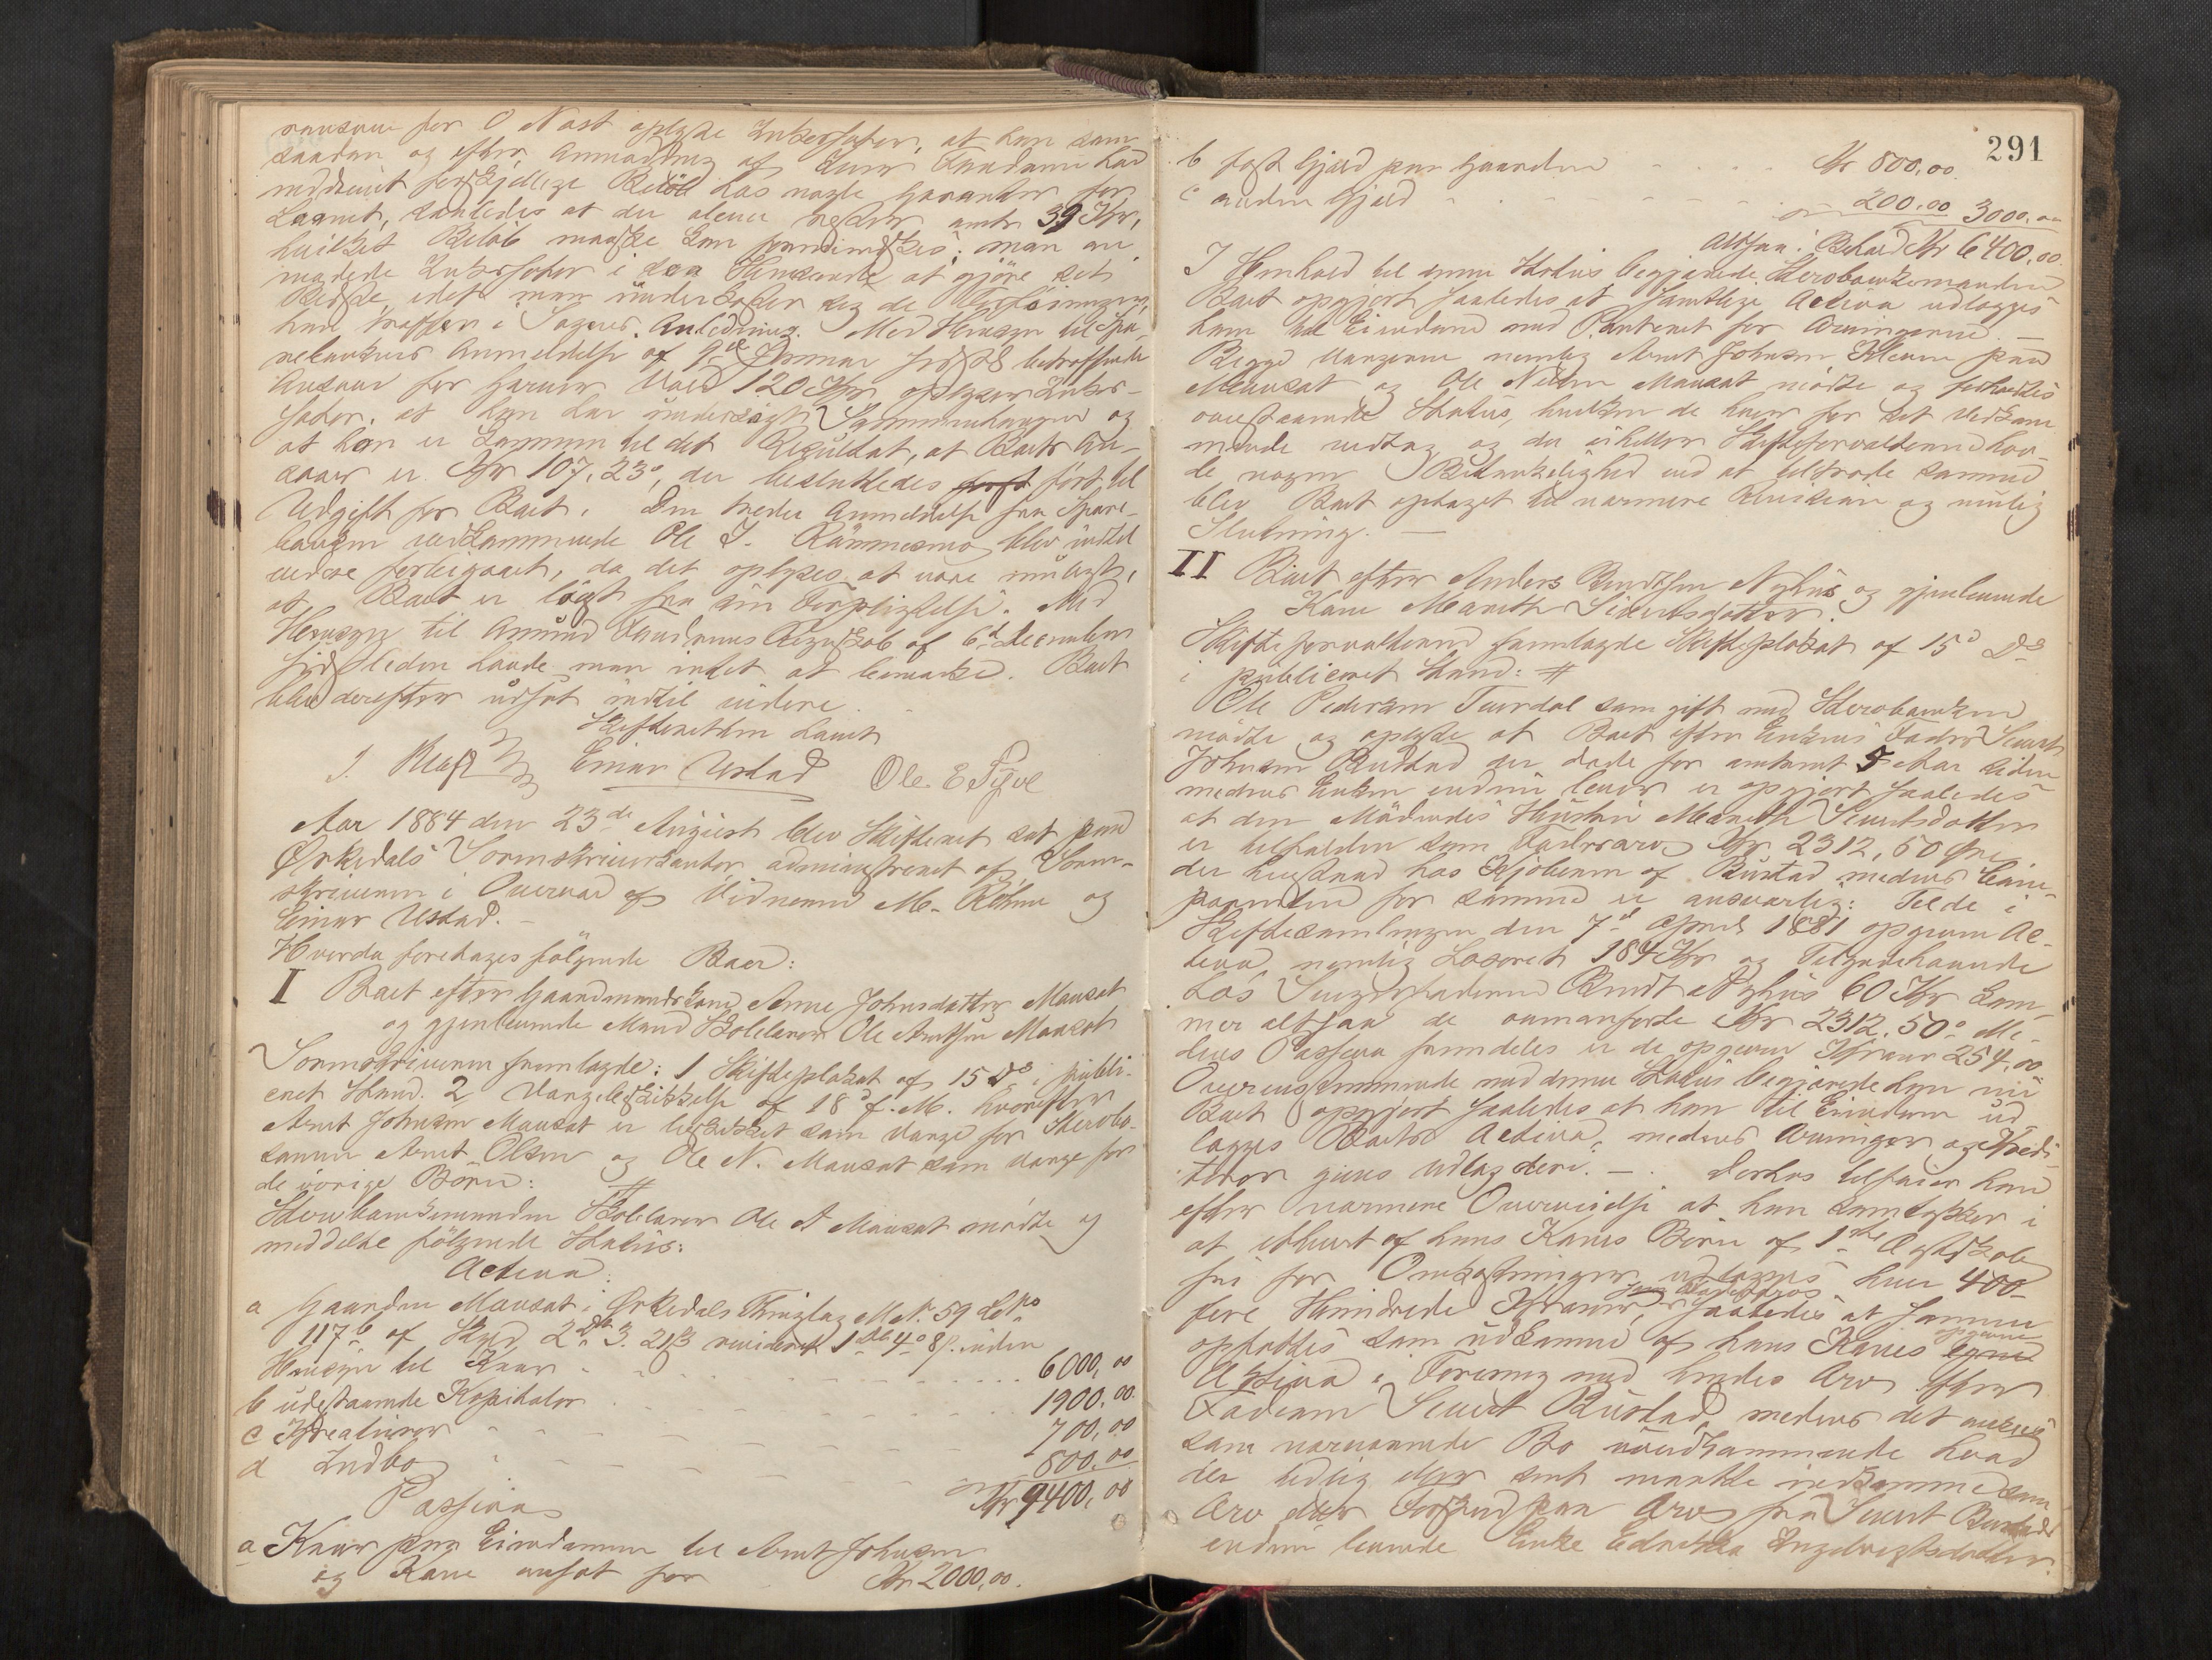 ransvar for O Nast oplyste Inkassator, at han som
saadan og efter Anmodning af Lars Fandann had
indkrævet forskjellige Beløb hos nogle Garantister for
Laanet, saaledes at der alene rester omtr 39 Kr,
hvilket Beløb maaske kan
modede Inkassator i saa Henseende at gjøre sit
Bedste, idet man underkaster sig de
han træffer i Sagens Anledning. Med Hensyn til Spa-
rebankens Anmeldelse af 9de Januar betræffende
Ansvar for Kr 120 oplyser Inkas-
sator, at han har undersøgt Sammenhængen og
at han er kommen til det Resultat, at Boets An-
svar er Kr 107,23º, der besluttedes ført til
Udgift for Boet. Den tredie Anmeldelse fra Spare-
banken vedkommende Ole J. Rømmesmo blev indtil
videre forbigaaet, da det oplyses at være muligt,
at Boet er løst fra sin Forpligtelse. Med
Hensyn til Amund Regnskab af 6te December
havde man intet at bemærke. Boet
blev derefter udsat indtil videre.
Skifteretten hævet
Einar Ustad Ole E Fyve
Aar 1884 den 23de August blev Skifteret sat paa
Ørkedals Sorenskriverkontor, administreret af Soren-
skriveren i Overvær af Vidnerne M. Røhme og
Einar Ustad.
Hvorda foretages følgende Boer:
I Boet efter Gaardmandskone Anne Johnsdatter Mausat
og gjenlevende Mand Skolelærer Ole Arntsen Mausat
Sorenskriveren fremlagde: 1 Skifteplakat af 15 Ds i publi-
ceret Stand. 2 Værgebeskikkelse af 18 f. M. hvorefter
Arnt Johnsen Mausat er beskikket som Værge for Stervbo-
sønnen Arnt Olsen og Ole N. Mausat som Værge for
de øvrige Børn: #
Stervboenkemanden Skolelærer Ole A Mausat mødte og
meddelte følgende Status:
Activa:
a Gaarden Mausat i Ørkedals Thinglag M.N. 59 L.No
117b af Skyld 2 3. 21 revideret 1 4 8 uden
Hensyn til Kaar 6000,00
b udestaaende Kapitaler 1900,00
c Kreaturer 700,00
d Indbo 800,00
Kr 9400,00
Passiva
a Kaar paa Eiendommen til Arnt Johnsen
og Kone ansat for Kr 2000,00.
291
b fast Gjæld paa Gaarden Kr 800,00
c anden Gjæld 200,00 3000,00
Altsaa: Behold Kr 6400,00
I Henhold til denne Status begjærede Stervboenkemanden
Boet opgjort saaledes at samtlige Activa udlægges
ham til Eiendom mod Panteret for Arvingerne.
Begge Værgerne nemlig Arnt Johnsen Klemm paa
Mausat og Ole Nilsen Mausat mødte og forholdtes
ovenstaaende Status, hvilken de hver for sit Vedkom-
mende vedtog og da heller Skifteforvalteren hav-
de nogen Betænkelighed ved at tiltræde samme
blev Boet optaget til nærmere Revision og mulig
Slutning.
II Boet efter Anders Bendtsen Nyhus og gjenlevende
Kone Mareth Siurtsdatter.
Skifteforvalteren fremlagde Skifteplakat af 15 Ds
i publiceret Stand: #
Ole Pedersen Tuurdal som gift med Stervboenken
mødte og oplyste at Boet efter Enkens Fader Siurt
Johnsen Rustad der døde for omtrent 5 Aar siden
medens Enken endnu lever er opgjort saaledes
at den Mødendes Hustru Mareth Siurtsdatter
er tilfalden som Fædrearv Kr 2312,50 Øre
der indestaar hos Kjøberen af Rustad medens
for samme er ansvarlig: Til de i
Skiftesamlingen den 7de April 1881 opgivne Ac-
tiva nemlig Løsøret 184 Kr og Tilgodehavende
hos Svigerfaderen Bendt Nyhus 60 Kr kom-
mer altsaa de ovenanførte Kr 2312.50º Me-
dens Passiva fremdeles er de opgivne Kroner 254,00
Overensstemmende med denne Status begjærede han nu
Boet opgjort saaledes at han til Eiendom ud-
lægges Boets Activa, medens Arvinger og Kredi-
torer gives Udlæg deri. —. Derhos tilføier han
efter nærmere Overveielse at han samtykker i
at ethvert af hans Kones Børn af 1ste Ægteskab
fri for Omkostninger udlægges hver 400
fire Hundrede Kroner, saaledes at Summen
opfattes som udkommet af hans Kones
Activa i Forening med hendes Arv efter
Faderen Siurt Rustad, medens det ansees
som nærværende Bo uvedkommende hvad
der tidlig eller sent maatte indkomme som
Arv eller Forskud paa Arv fra Siurt Rustads
endnu levende Enke Ingebrigtsdatter.